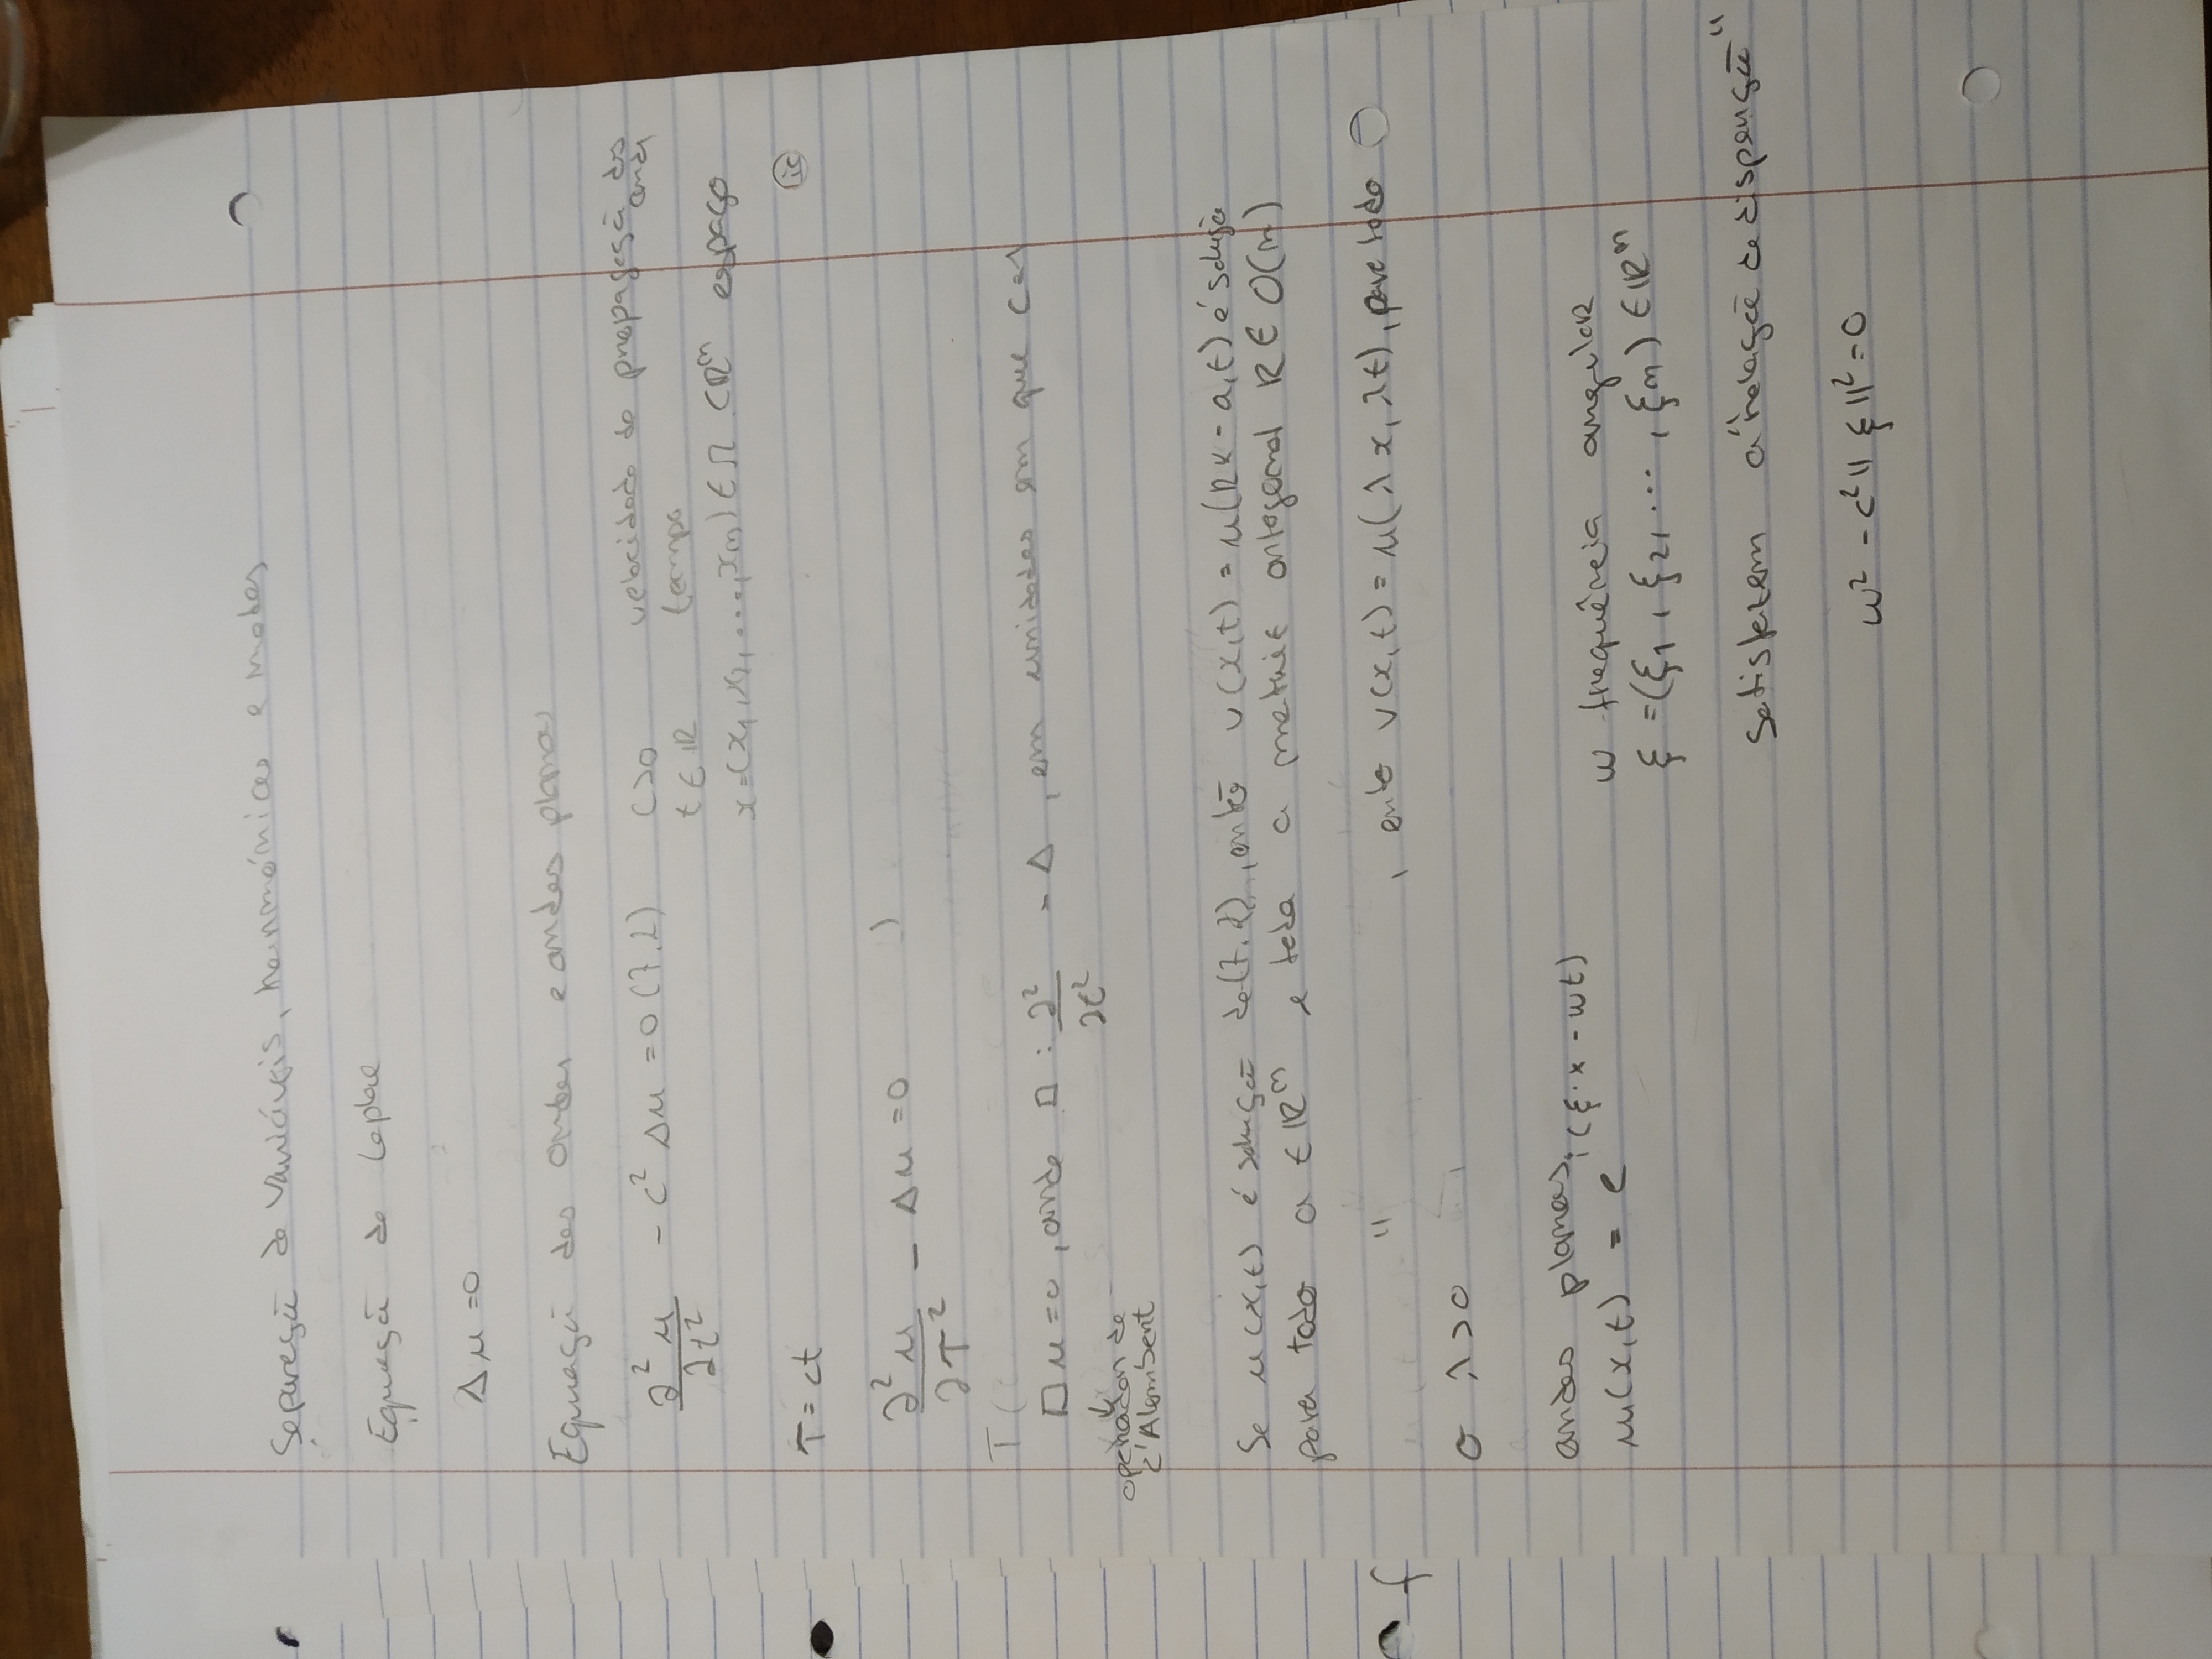 Separação de variáveis, harmónicas e modos
Equação de Laplace
Δu = 0
Equação das ondas e ondas planas
∂²u/∂t² - c² Δu = 0 (7.2) c>0 velocidade de propagação da onda
t ∈ ℝ tempo
x=(x₁,x₂,...,xₙ) ∈ Ω ⊂ ℝⁿ espaço
T = ct
∂²u/∂T² - Δu = 0
□u = 0, onde □ : ∂²/∂t² - Δ, em unidades em que c=1
operador de d'Alembert
Se u(x,t) é solução de (7.2), então v(x,t) = u(Rx - a,t) é solução
para todo a ∈ ℝⁿ e toda a matriz ortogonal R ∈ O(n)
" , então v(x,t) = u(λx, λt), para todo
o λ>0
ondas planas
u(x,t) = e^{i(ξ·x - wt)} w frequência angular
ξ = (ξ₁, ξ₂, ..., ξₙ) ∈ ℝⁿ
satisfazem a "relação de dispersão"
w² - c²||ξ||² = 0